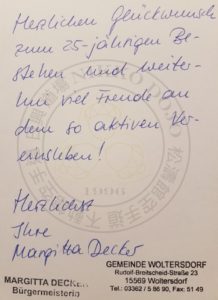 Herzlichen Glückwunsch
zum 25-jährigen Be-
stehen und weiter-
hin viel Freude an
dem so aktiven Ver-
einsleben!
Herzlichst
Ihre
Margitta Decker
MARGITTA DECKER
Bürgermeisterin
GEMEINDE WOLTERSDORF
Rudolf-Breitscheid-Straße 23
15569 Woltersdorf
Tel.: 03362 / 5 86 90, Fax: 51 49
1996